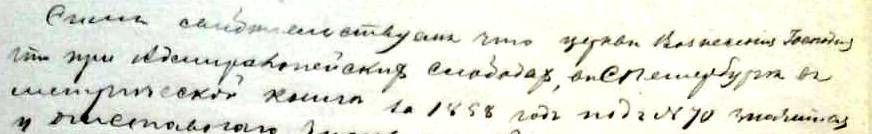 Симъ свидѣтельствуемъ что церкви Вознесенія Господня
что при Адмиралтейскихъ слободахъ, въ СПетербургѣ въ
метрической книгѣ за 1858 годъ подъ № 70 значится
у